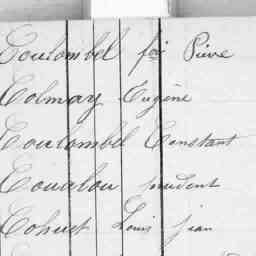 Coulombel foi Pierre
Colmay Eugène
Coulombel Constant
Coualou prudent
Cohuet Louis jean